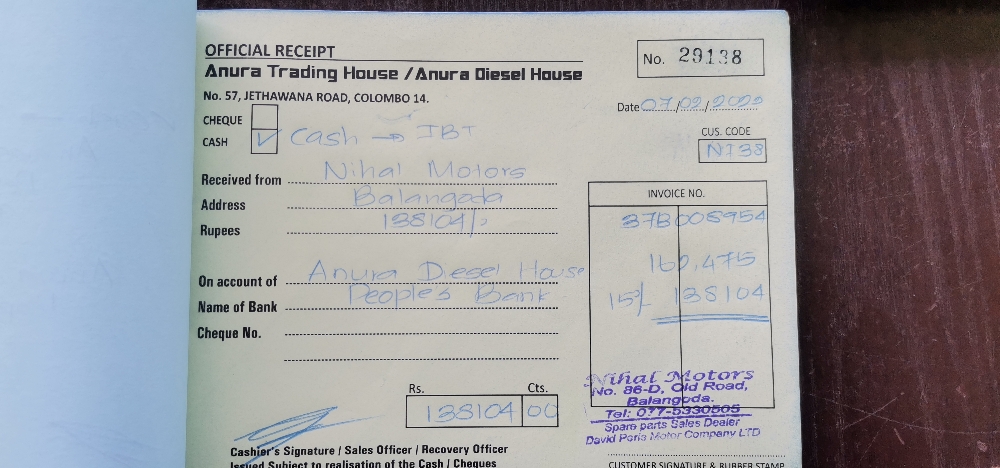 OFFICIAL RECEIPT
No. 29138
Anura Trading House /Anura Diesel House
No. 57, JETHAWANA ROAD, COLOMBO 14.
Date 07/02/2022
CHEQUE
CASH ✓ Cash → IBT
CUS. CODE
NI38
Received from Nihal Motors
Address Balangada
Rupees 138104/
INVOICE NO.
37B005954
On account of Anura Diesel House
Name of Bank Peoples Bank
Cheque No.
,475
15% 138104
Rs. Cts.
138104 00
Nihal Motors
No. 86-D, Old Road,
Balangoda.
Tel: 077-5330505
Spare parts Sales Dealer
David Peris Motor Company LTD
Cashier's Signature / Sales Officer / Recovery Officer
Issued Subject to realisation of the Cash / Cheques
CUSTOMER SIGNATURE & RUBBER STAMP